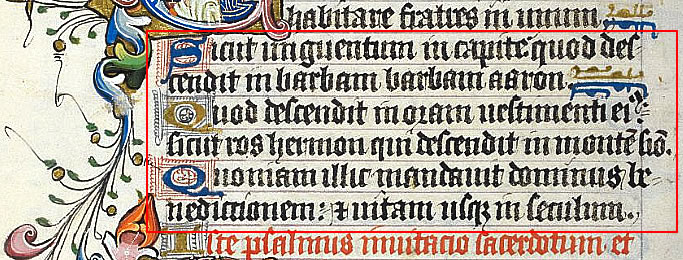 habitare fratres in unum.
Sicut unguentum in capite quod des
cendit in barbam barbam aaron
Quod descendit in oram uestimenti ei⁹
sicut ros hermon qui descendit in montē siō.
Quoniam illic mandauit dominus be-
nedictionem: ⁊ uitam usqꝫ in seculum.
Iste psalmus inuitacio sacerdotum et